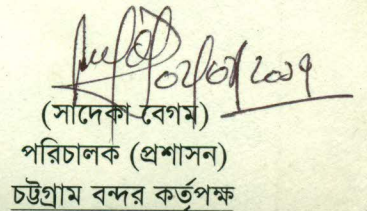 (সাদেকা বেগম)
পরিচালক (প্রশাসন)
চট্টগ্রাম বন্দর কর্তৃপক্ষ